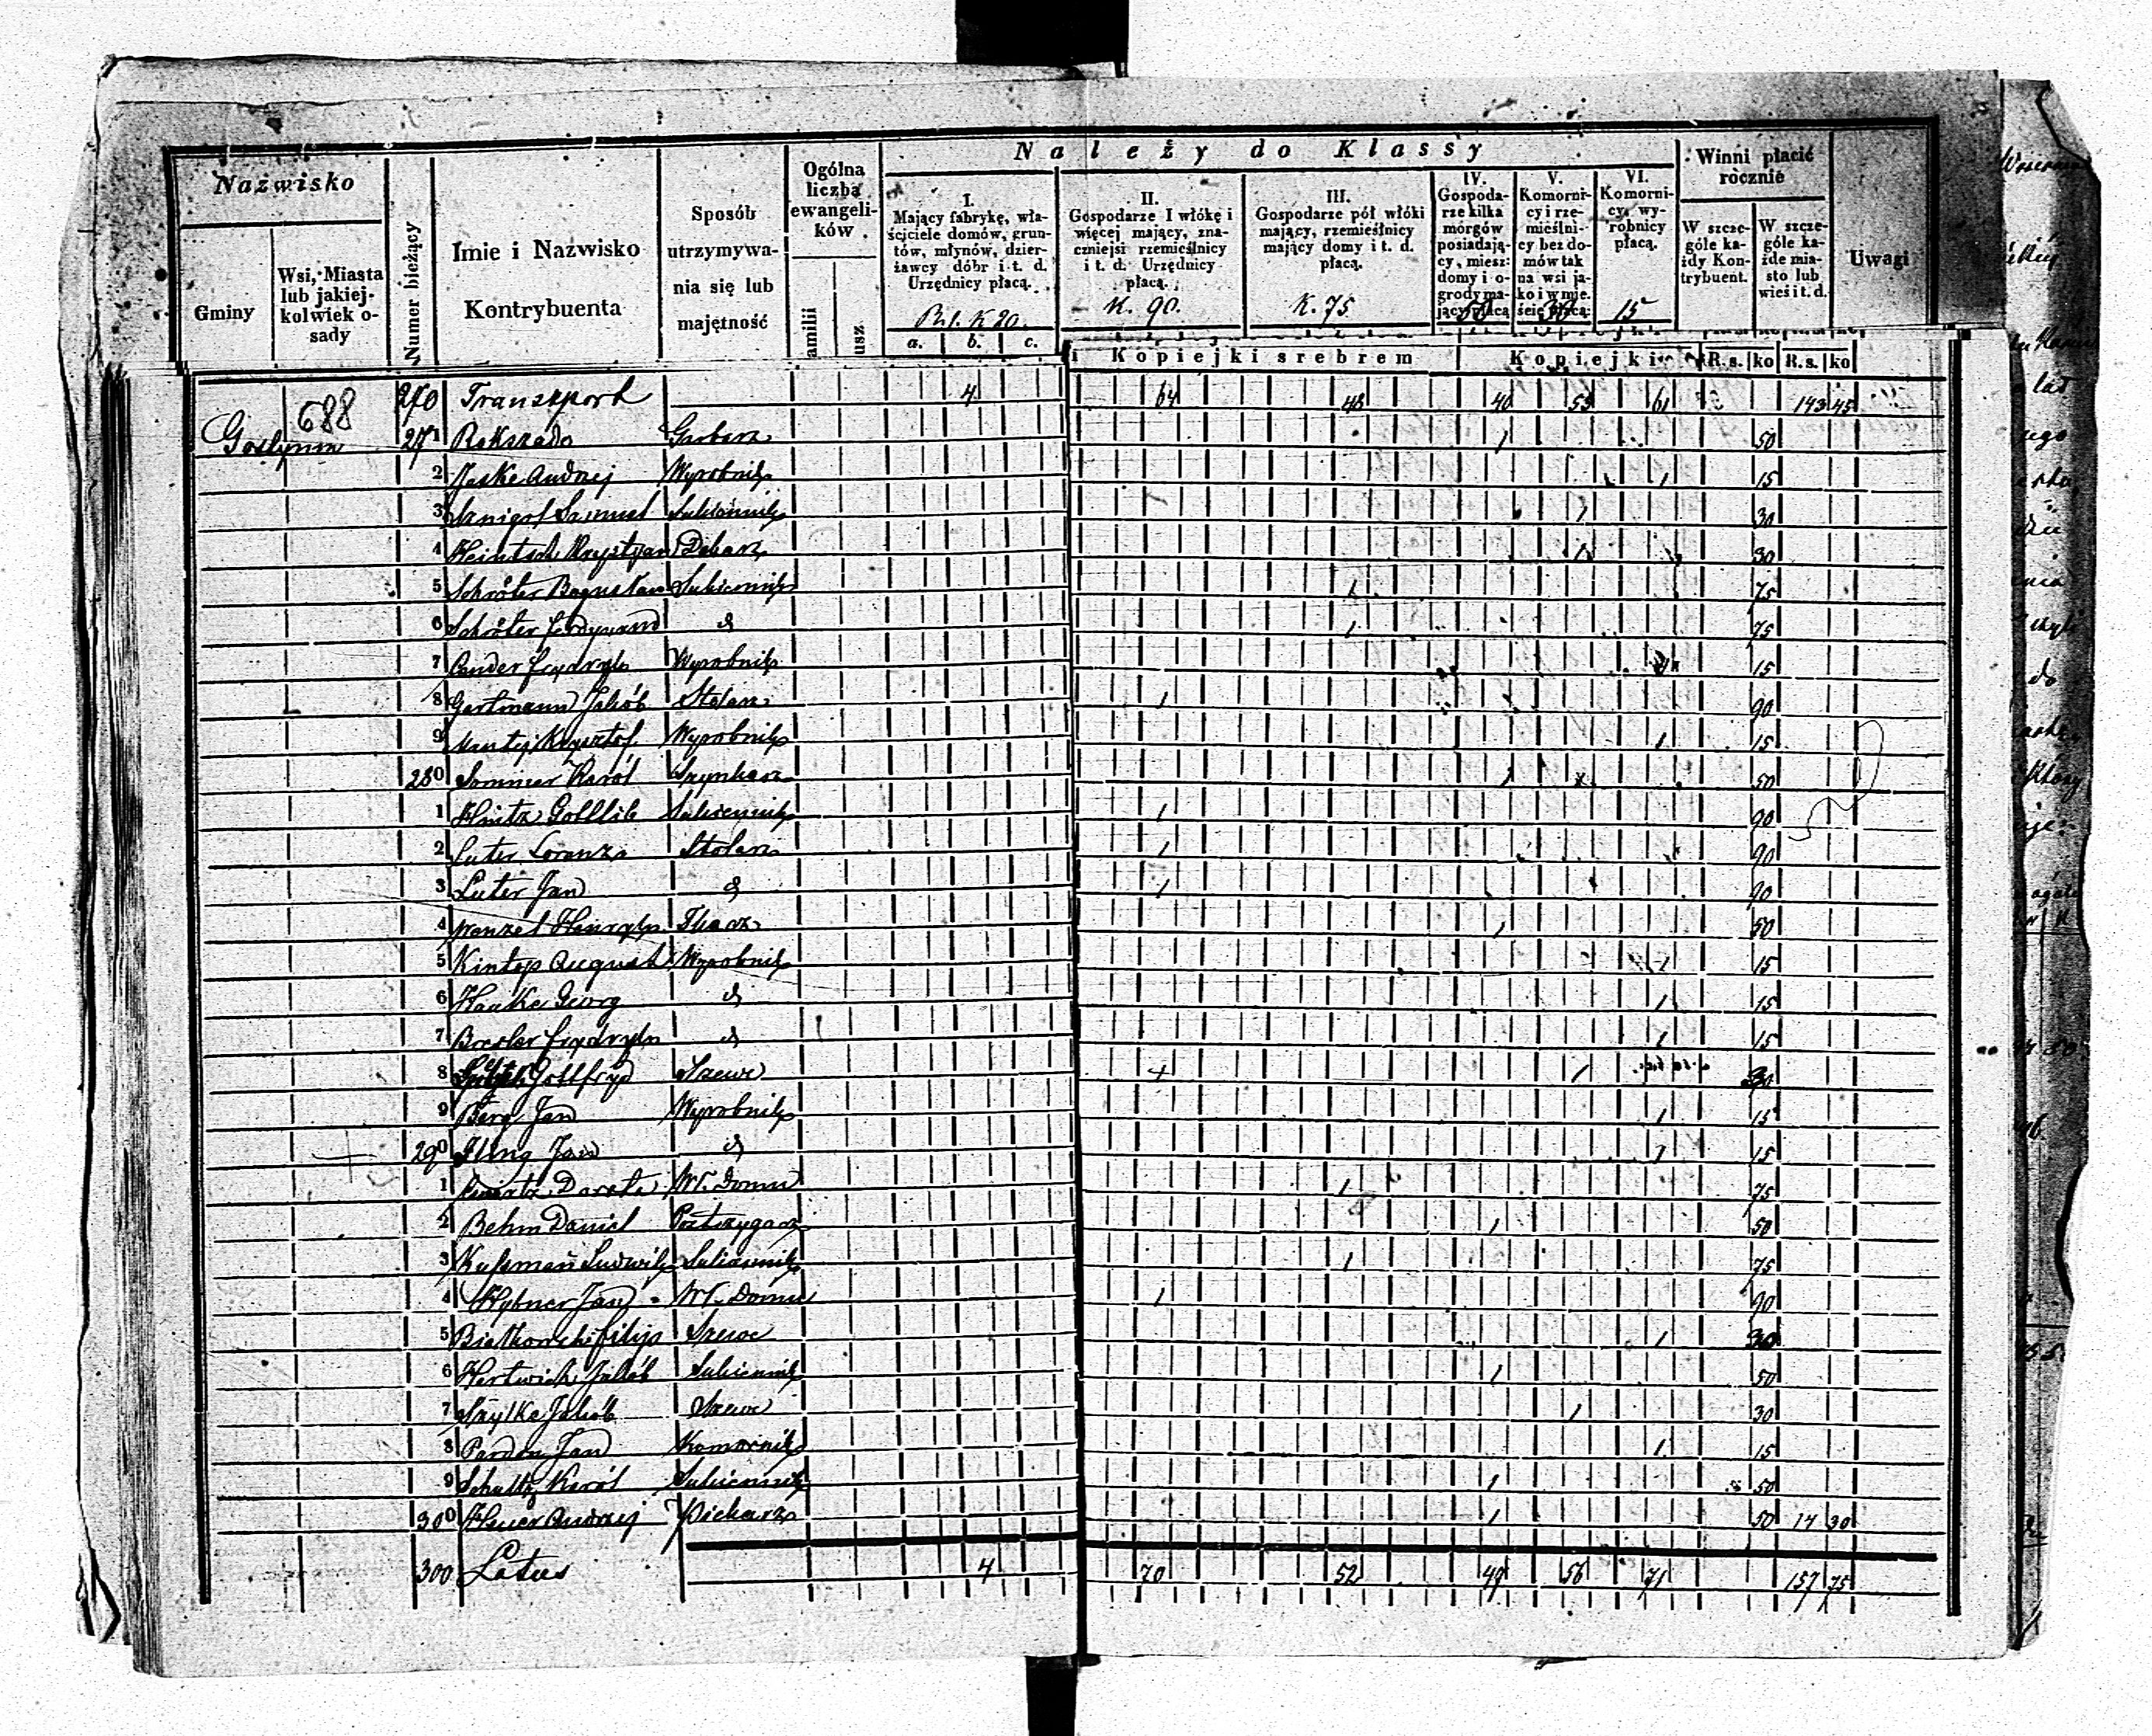 Należy do Klassy
Nazwisko
Gminy
Wsi, Miasta
lub jakiej-
kolwiek o-
sady
Numer bieżący
Imie i Nazwisko
Kontrybuenta
Sposób
utrzymywa-
nia się lub
majętność
Ogólna
liczba
ewangeli-
ków
amilii
usz
I.
Mający fabrykę, wła-
ściciele domów, grun-
tów, młynów, dzier-
żawcy dóbr i t. d.
Urzędnicy płacą.
R.s. 1. K 20.
a. b. c.
II.
Gospodarze I włókę i
więcej mający, zna-
czniejsi rzemieślnicy
i t. d. Urzędnicy
płacą.
K. 90.
III.
Gospodarze pół włóki
mający, rzemieślnicy
mający domy i t. d.
płacą.
K. 75
IV.
Gospoda-
rze kilka
morgów
posiadają-
cy, miesz:
domy i o-
grody ma-
jący płacą
50
V.
Komorni-
cy i rze-
mieślni-
cy bez do-
mów tak
na wsi ja-
ko i w mie-
ście płacą:
30
VI.
Komorni-
cy, wy-
robnicy
płacą.
15
Winni płacić
rocznie
W szcze-
góle ka-
żdy Kon-
trybuent.
W szcze-
góle ka-
żde mia-
sto lub
wieś i t. d.
Uwagi
Kopiejki srebrem Kopiejki R.s. ko R.s. ko
270 Transport 4 64 48 40 53 61 143 45
688
Gostynin 271 Rekszado Garbarz 1 50
2 Maske Andrzej Wyrobnik 1 15
3 Samuel Sukiennik 1 30
4 Heintsch Krystyan 1 30
5 Schröter Bogusław Sukiennik 1 75
6 Schröter Ferdynand d 1 75
7 Fryderyk Wyrobnik 15
8 Gartmann Jakób Stolarz 1 90
9 Mantej Krysztof Wyrobnik 1 15
280 Sommer Karól Szynkarz 1 50
1 Hintz Gottlib Sukiennik 1 90
2 Luter Lorenz Stolarz 1 90
3 Luter Jan d 1 90
4 Wenzel Henryk Tkacz 1 50
5 Kintop August Wyrobnik 1 15
6 Hauke Georg d 1 15
7 Bresler Fryderyk d 1 15
8 Gottfryd Szewc 1 30
9 Berg Jan Wyrobnik 1 15
290 Jan d 1 15
1 Dorota Wł. Domu 1 75
2 Behm Daniel Postrzygacz 1 50
3 Kussman Ludwik Sukiennik 1 75
4 Hybner Jan Wł. Domu 1 90
5 Białkowski Filip Szewc 1 30
6 Hertwich Jakób Sukiennik 1 50
7 Szylke Jakób Szewc 1 30
8 Pardon Jan Komornik 1 15
9 Schultz Karól Sukiennik 1 50
300 Andrzej Piekarz 1 50 14 30
300 Latus 4 70 52 49 56 71 157 75